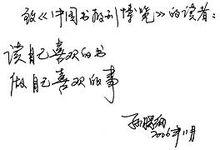 致《中国书报刊博览》的读者：
读自己喜欢的书
做自己喜欢的事
2006年11月